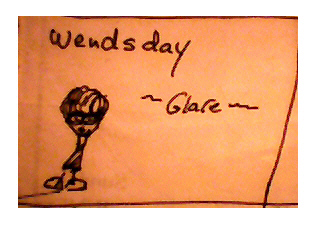 Wendsday
~Glare~